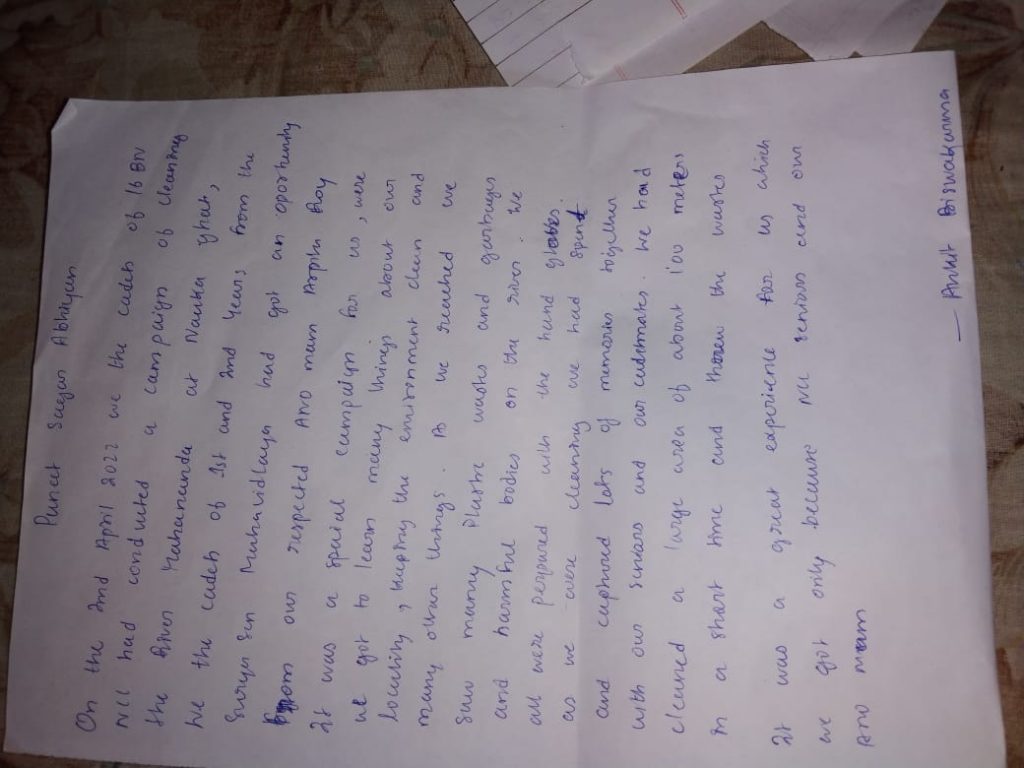 Puneet Sagar Abhiyan
On the 2nd April 2022 we the cadets of 16 BN
NCC had conducted a campaign of cleaning
the River Mahananda at Nauka ghat,
We the cadets of 1st and 2nd years from the
Surya Sen Mahavidyalaya had got an opportunity
from our respected ANO mam Arpita Roy
It was a special campaign for us, were
we got to learn many things about our
locality, keeping the environment clean and
many other things. As we reached we
saw many Plastic wastes and garbages
and harmful bodies on the river. We
all were perpared with the hand globes.
as we were cleaning we had spent
and captured lots of memories together
with our seniors and our cadetmates. We had
cleaned a large area of about 100 meters
in a short time and thrown the wastes
It was a great experience for us which
we got only because NCC seniors and our
ANO mam
— Ankit Biswakarma